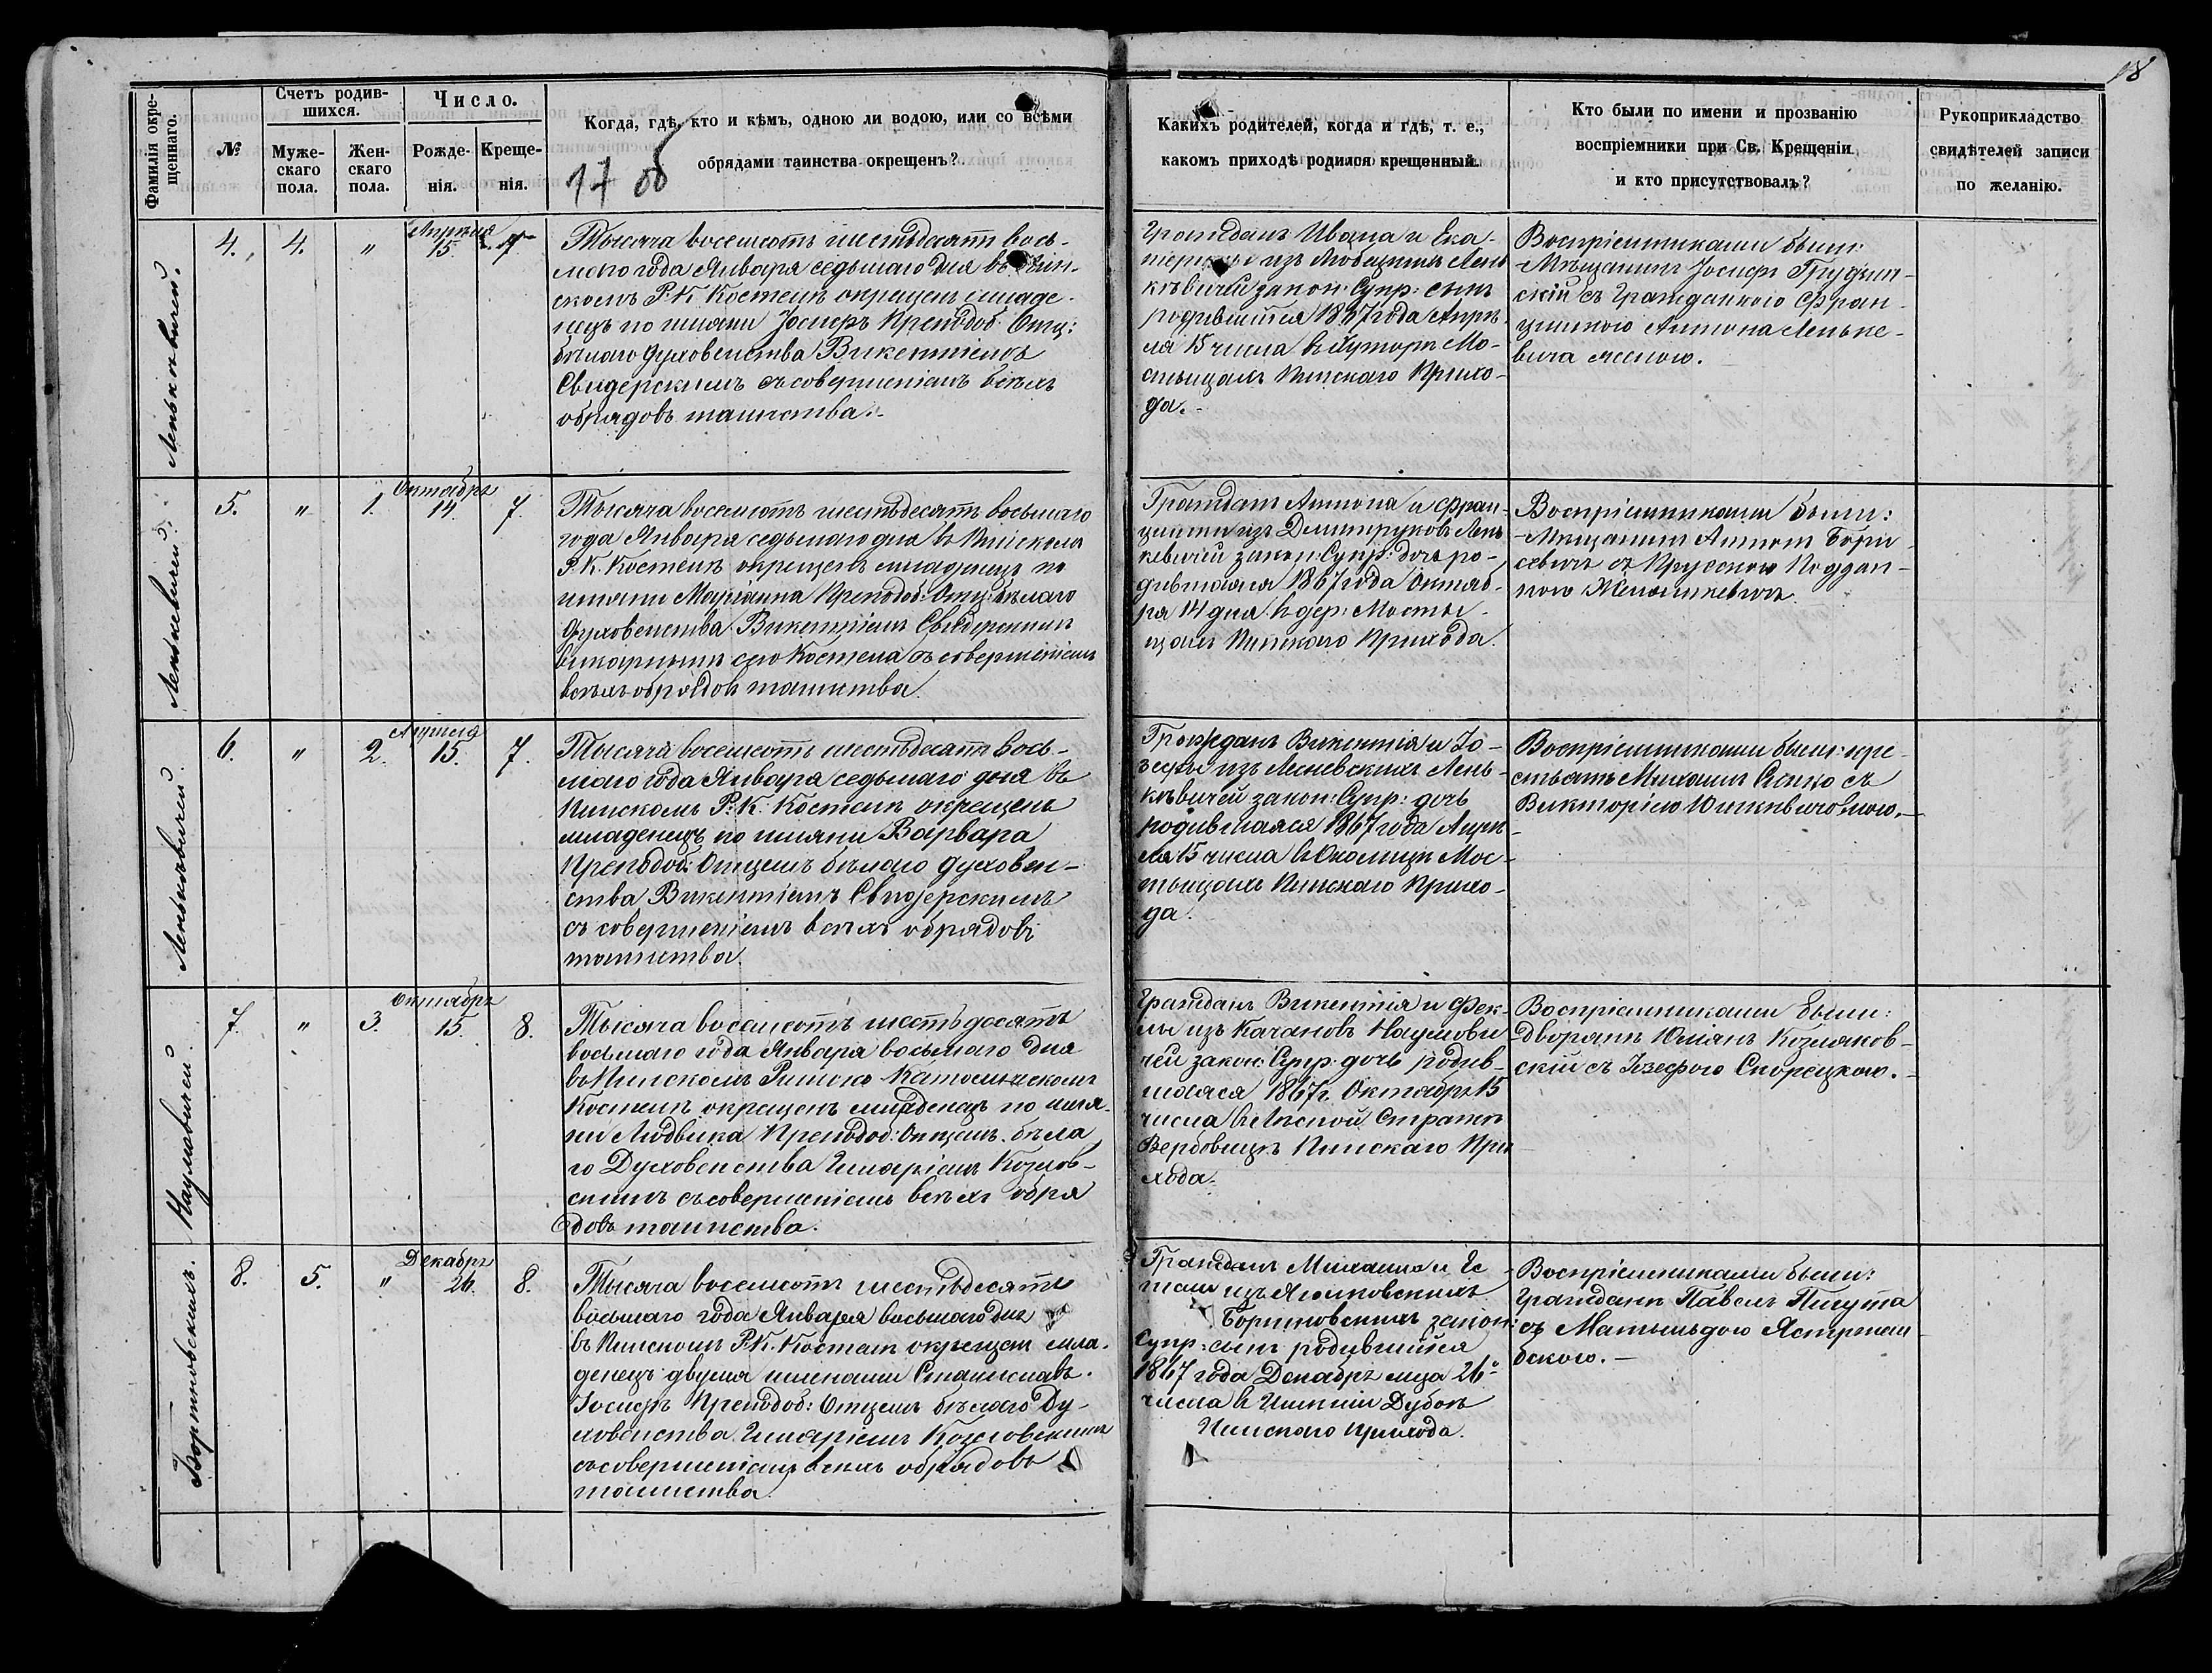 18
Фамилія окре-
щеннаго.
№
Счетъ родив-
шихся.
Муже-
скаго
пола.
Жен-
скаго
пола.
Число.
Рожде-
нія.
Креще-
нія.
Когда, гдѣ, кто и кѣмъ, одною ли водою, или со всѣми
обрядами таинства окрещенъ?
Какихъ родителей, когда и гдѣ, т. е.,
какомъ приходѣ родился крещенный.
Кто были по имени и прозванію
воспріемники при Св. Крещеніи
и кто присутствовалъ?
Рукоприкладство
свидѣтелей записи
по желанію.
Ленькѣвичей.
4. 4. " Апрѣля 15. 7
Тысяча восемсотъ шестдесятъ вось-
маго года Января седьмаго дня въ Пин-
скомъ Р.К. Костелѣ окрещенъ младе-
нецъ по имяни Іосифъ Преподоб. Отц:
бѣлаго духовенства Викентіемъ
Свидерскимъ съ совершеніемъ всѣхъ
обрядовъ таинства.-
Гражданъ Ивана и Ека-
терины изъ Лень
кѣвичей закон: Супр: сынъ
родившійся 1867 года Апрѣ-
ля 15 числа въ Хуторѣ Мо-
стыцахъ Пинскаго Прихо-
да.-
Воспріемниками были:
Мѣщанинъ Іосифъ
скій съ Гражданкою Фран-
цишкою Антона Леньке-
вича женою.
Ленькевичей.
5. " 1. Октябрь 14. 7.
Тысяча восемсотъ шестьдесятъ восьмаго
года Января седьмаго дня въ Пинскомъ
Р.К. Костелѣ окрещенъ младенецъ по
имяни Маріанна Преподоб: Отц: бѣлаго
духовенства Викентіемъ Свидерскимъ
викарнымъ сего Костела съ совершеніемъ
всѣхъ обрядовъ таинства.
Гражданъ Антона и Фран-
цишки изъ Дмитруковъ Лень
кевичей закон: Супр: дочь ро-
дившаяся 1867 года Октяб-
ря 14 дня въ дер: Мосты-
цахъ Пинскаго Прихода.
Воспріемниками были:
Мѣщанинъ Антонъ Бори
севичъ съ Прусскою Поддан-
ною
Ленькѣвичей
6. " 2. Апрѣля 15. 7.
Тысяча восемсотъ шестьдесятъ вось-
маго года Января седьмаго дня въ
Пинскомъ Р:К: Костелѣ окрещенъ
младенецъ по имяни Варвара
Преподоб: Отцемъ бѣлаго духовен-
ства Викентіемъ Свидерскимъ
съ совершеніемъ всѣхъ обрядовъ
таинства.
Гражданъ Викентія и Іо-
зефы изъ Лень-
кѣвичей закон: Супр: дочь
родившаяся 1867 года Апрѣ-
ля 15 числа въ Околицѣ Мос-
тыцахъ Пинскаго Прихо-
да.
Воспріемниками были: кре-
стьянъ Михаилъ съ
Викторіею
Наумовичей
7. " 3. Октябрь 15. 8.
Тысяча восемсотъ шестьдесятъ
восьмаго года Января восьмаго дня
въ Пинскомъ Римско-Католическомъ
Костелѣ окрещенъ младенецъ по имя-
ни Людвика Преподоб: Отцемъ бѣла
го Духовенства Иляріемъ Козлов-
скимъ съ совершеніемъ всѣхъ обря
довъ таинства.
Гражданъ Викентія и Фек-
лы изъ Качановъ Наумови
чей закон: Супр: дочь родив-
шаяся 1867 г. Октябрь 15
числа въ Лѣсной Стражѣ
Вербовицѣ Пинскаго При
хода.
Воспріемниками были:
Дворянъ Юліянъ Козляков-
скій съ Іозефою Скорецкою.-
Бортновскихъ.
8. 5. " Декабрь 26. 8.
Тысяча восемсотъ шестьдесятъ
восьмаго года Января восьмаго дня
въ Пинскомъ Р.К. Костелѣ окрещен мла-
денецъ двумя именами Станиславъ-
Іосифъ Преподоб: Отцемъ бѣлаго Ду-
ховенства Иляріемъ Козловскимъ
съ совершеніемъ всѣхъ обрядовъ
таинства.
Гражданъ Михаила и
изъ
Бортновскихъ закон:
Супр: сынъ родившійся
1867 года Декабрь мца 26
числа въ Имѣніи Дубои
Пинскаго прихода.
Воспріемниками были:
Гражданъ Павелъ Пигута
съ Матыльдою Ястржем
бскою.-